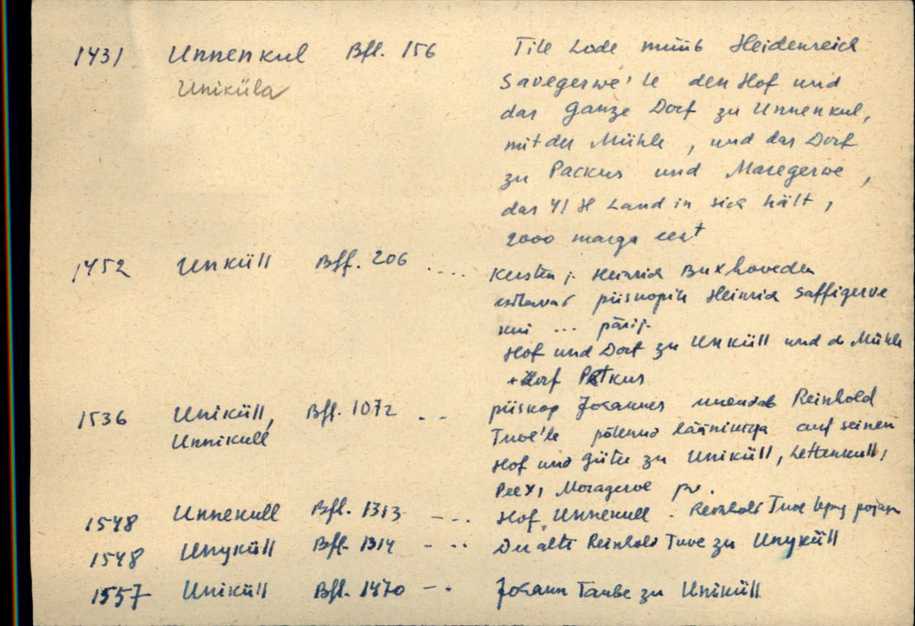 1431 Unnenkul Bfl. 156 Tile Lode müüb Heidenreich
Uniküla Savegerwe'le den Hof und
das ganze Dorf zu Unnenkul,
mit der Mühle, und das Dorf
zu Packus und Maregerwe,
das 41 H Land in sich hält,
2000 marga eest
1452 Unküll Bff. 206 .... Kersten j. Heinrich Buxhoveden
piiskopile Heinrich Saffigerve
kui ... pärij.
Hof und Dorf zu Unküll und d. Mühle
+ Dorf Patkus
1536 Uniküll, Bfl. 1072 .. piiskop Johannes uuendab Reinhold
Unnikull Tuve'le põlenud lääniurja auf seinen
Hof und Güter zu Uniküll, Lettenkull,
Peex, Moragerwe
1548 Unnekull Bfl. 1313 -... Hof Unnekull. Reinhold Tuve
1548 Unyküll Bff. 1314 -... Der alte Reinhold Tuve zu Unyküll
1557 Uniküll Bfl. 1470 -. Johann Taube zu Uniküll